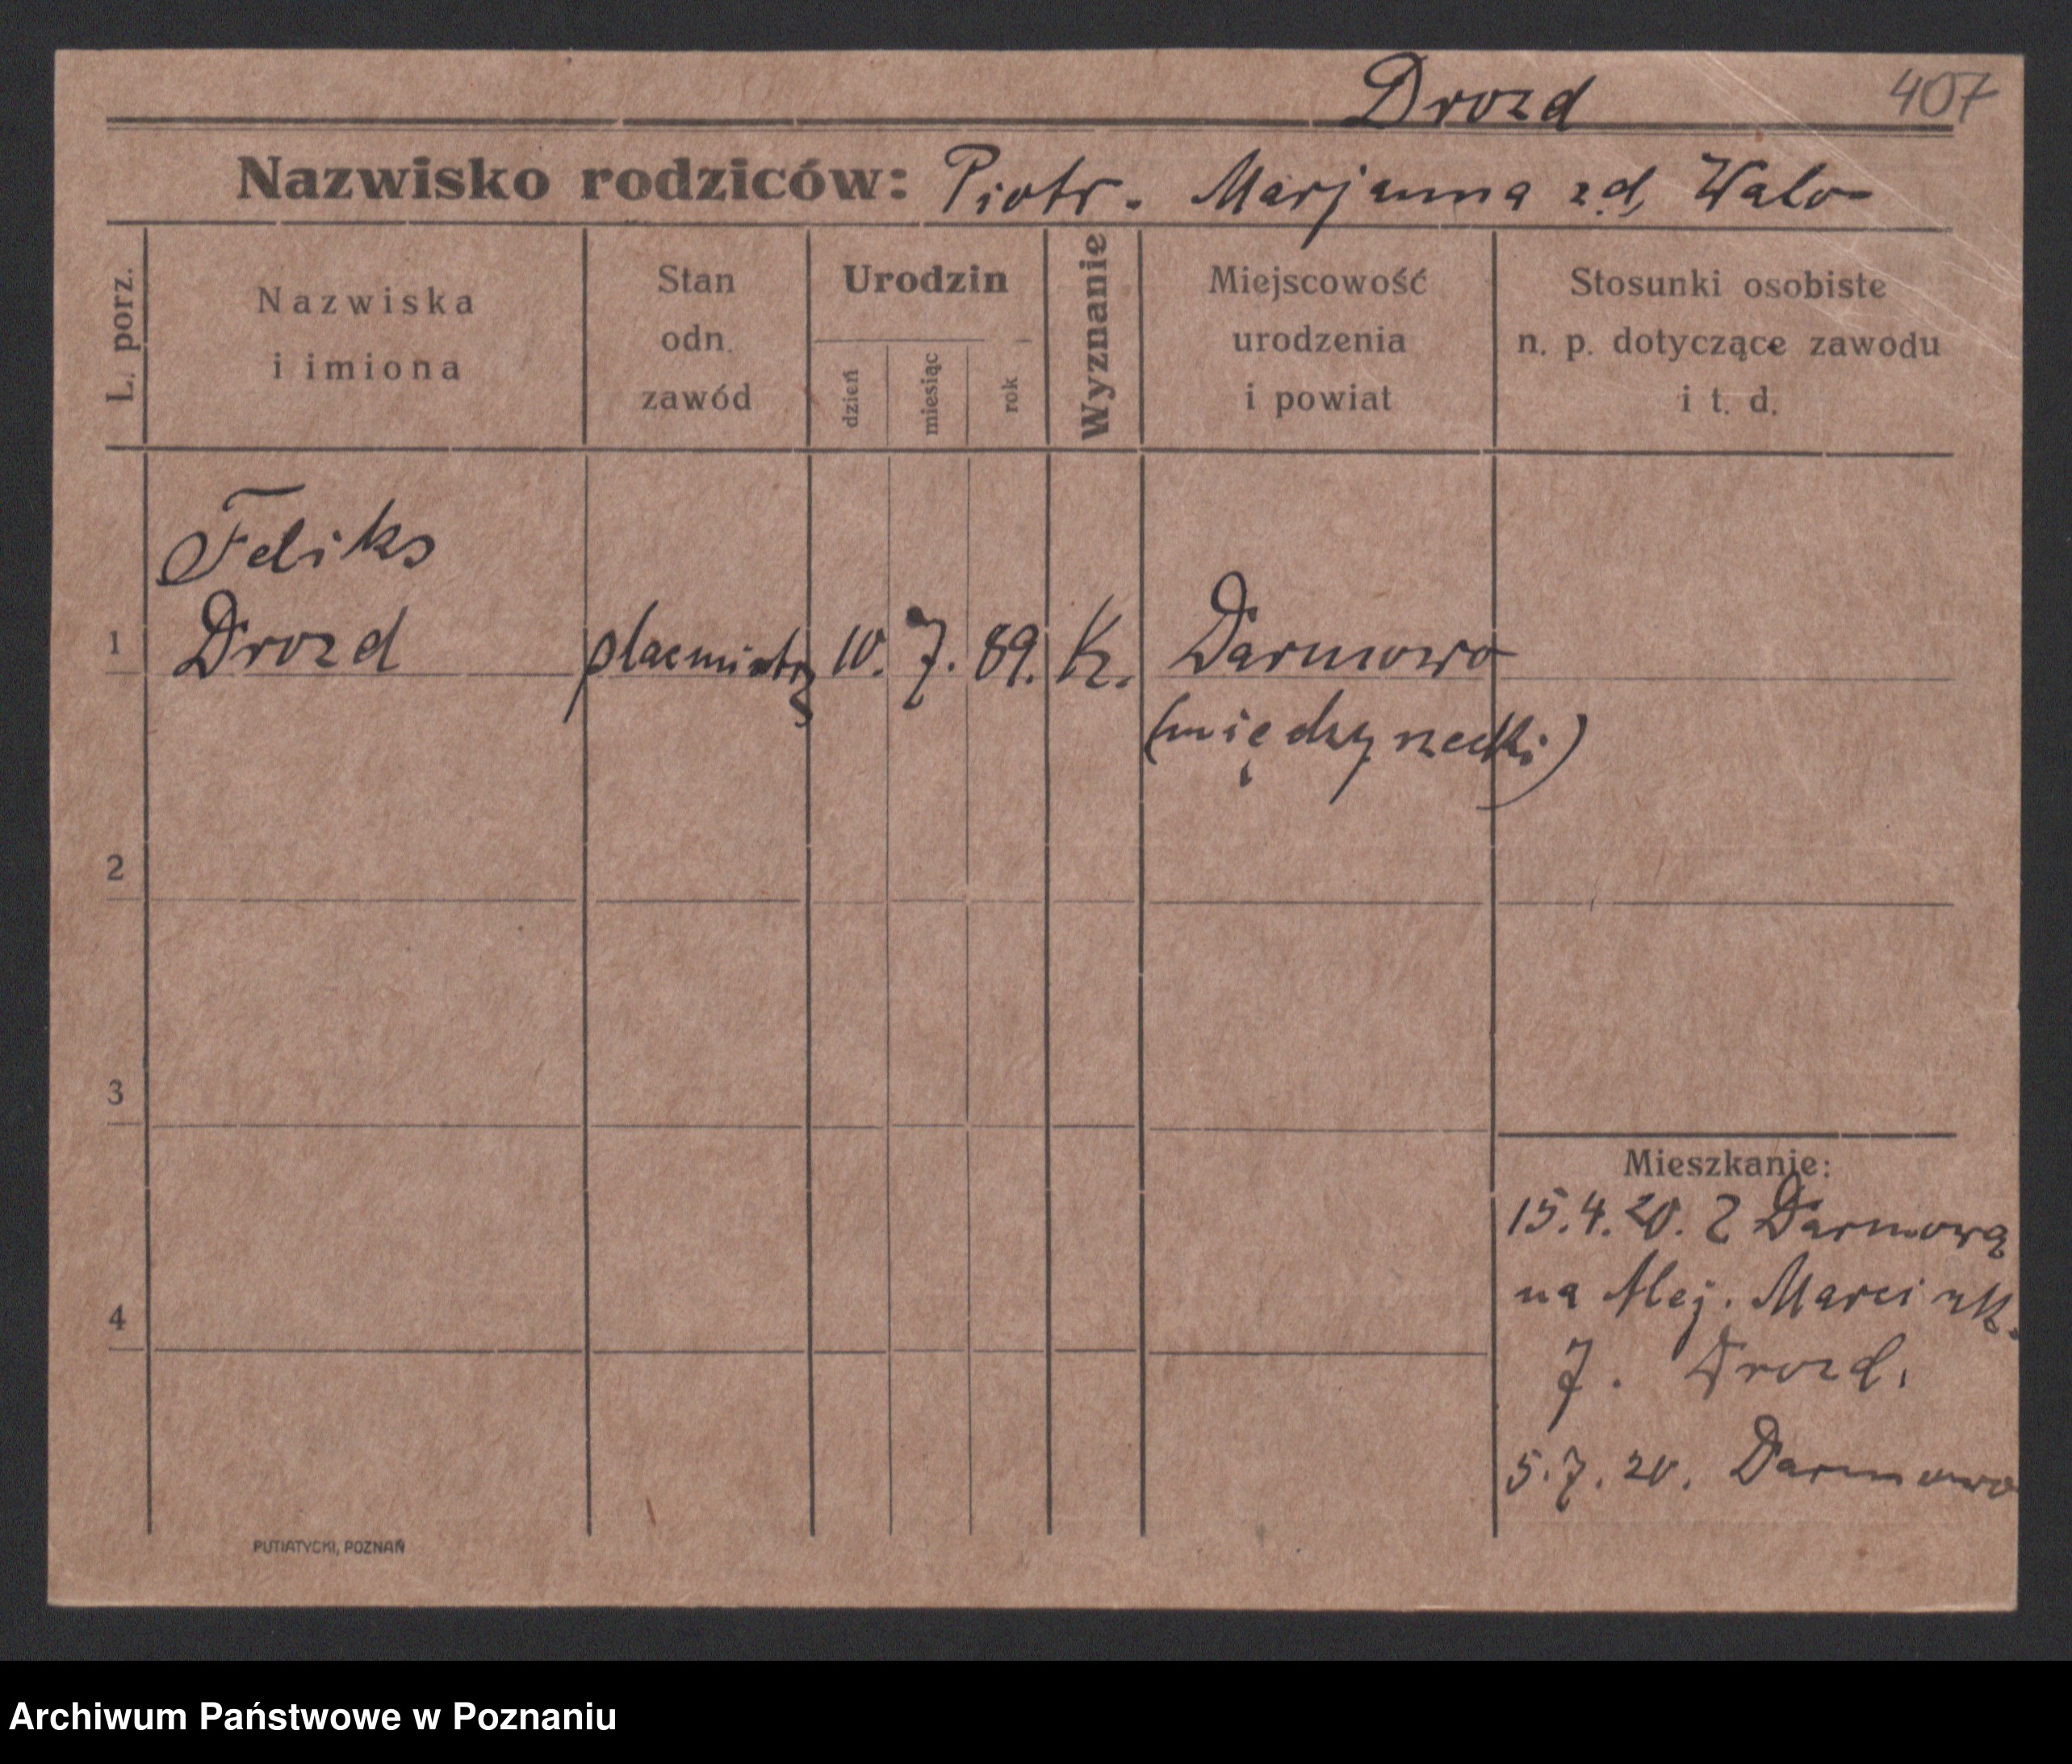 Drozd 407
Nazwisko rodziców: Piotr. Marjanna z.d. Walo-
L. porz.
Nazwiska
i imiona
Stan
odn.
zawód
Urodzin
dzień
miesiąc
rok
Wyznanie
Miejscowość
urodzenia
i powiat
Stosunki osobiste
n. p. dotyczące zawodu
i t. d.
Feliks
1 Drozd placmistrz 10. 7. 89. K. Darmowo
(międzyrzecki)
2
3
Mieszkanie:
15.4.20. Z Darmowa
na Alej. Marcink.
4
7. Drozd.
5.7.20. Darmowo
PUTIATYCKI, POZNAŃ
Archiwum Państwowe w Poznaniu